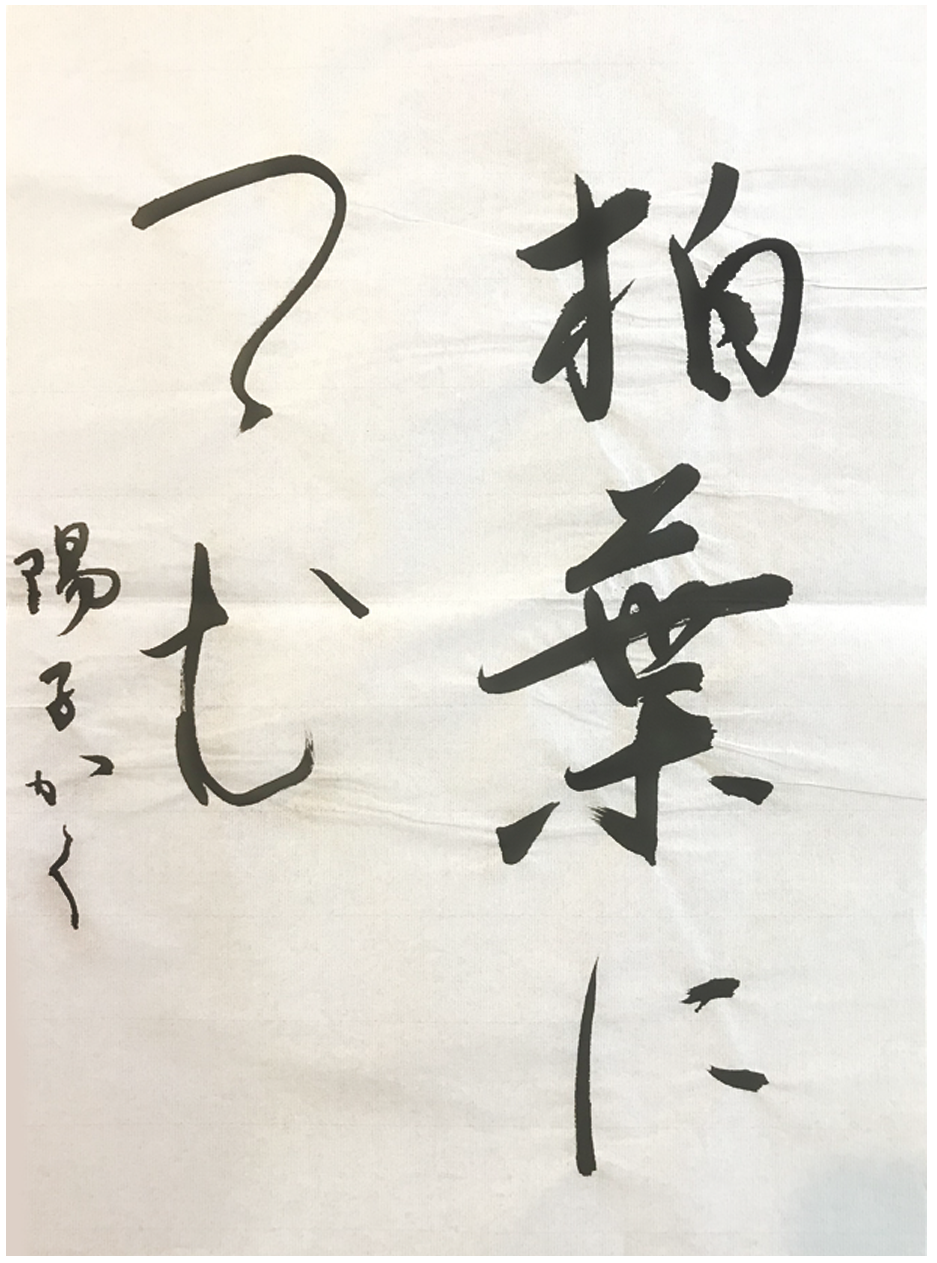 柏葉に
つむ
陽子かく